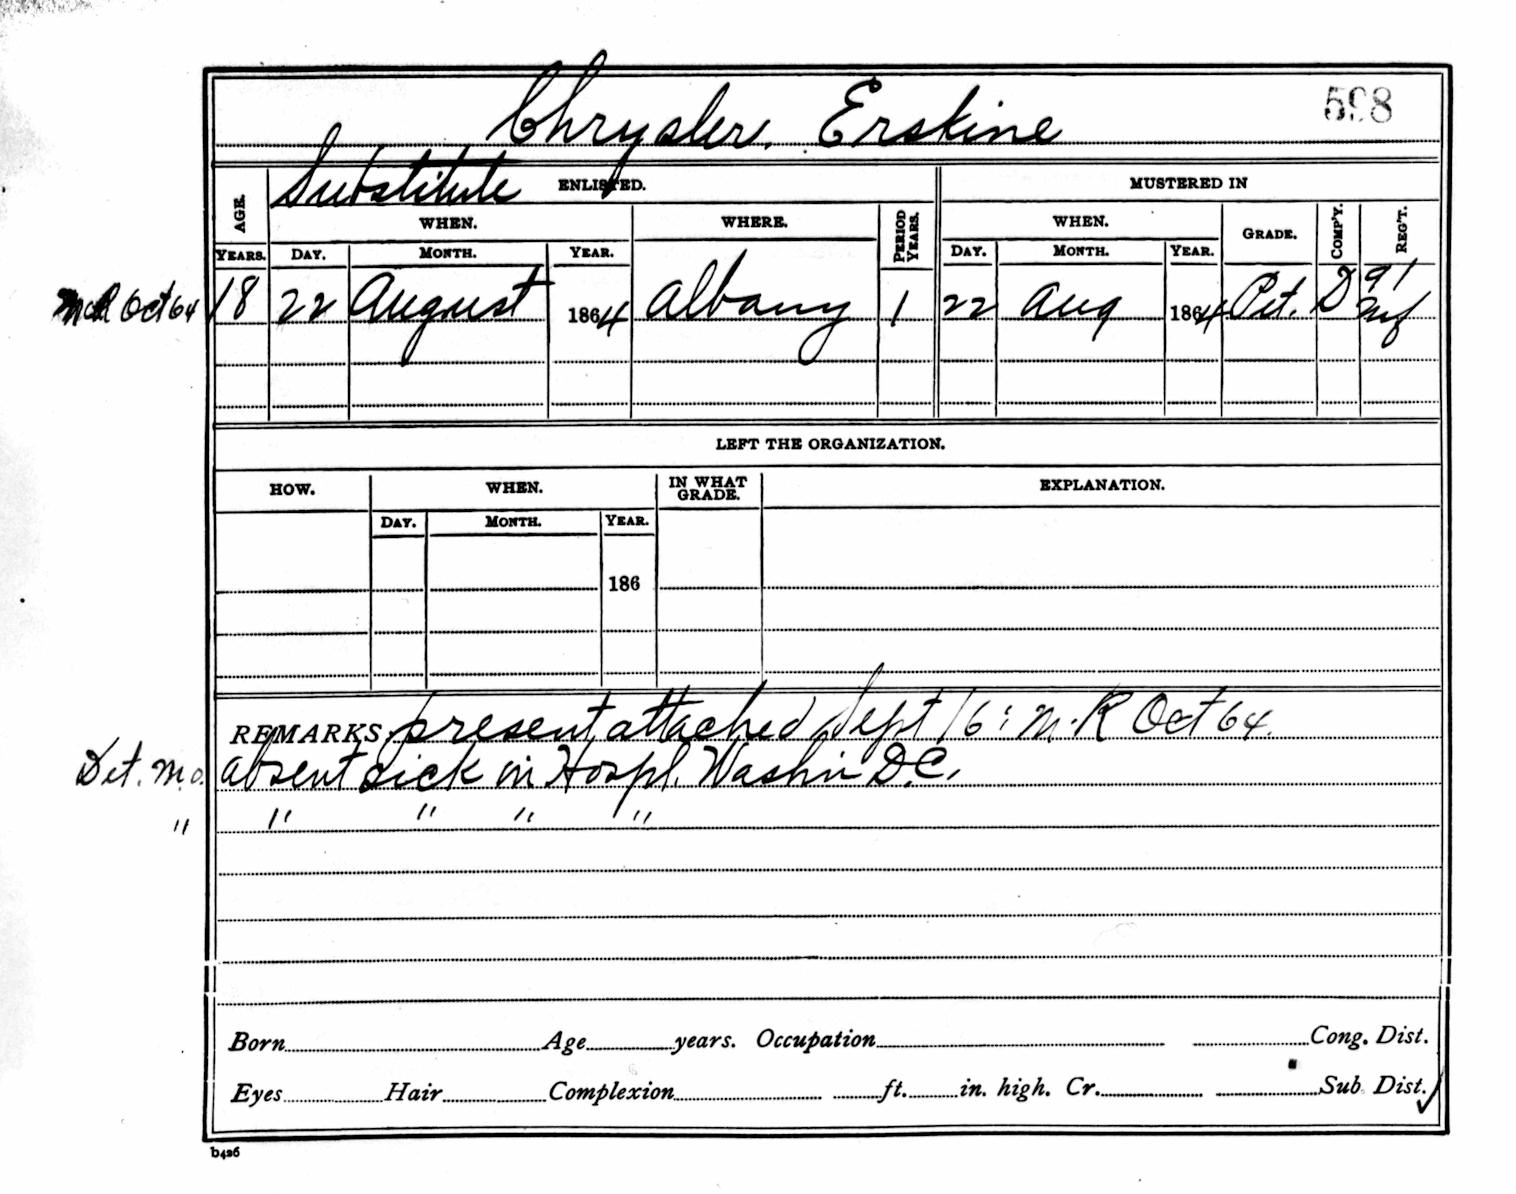 Chrysler, Erskine 598
Substitute ENLISTED. MUSTERED IN
AGE. WHEN. WHERE. PERIOD YEARS. WHEN. GRADE. COMP'Y. REG'T.
YEARS. DAY. MONTH. YEAR. DAY. MONTH. YEAR.
M R Oct 64 18 22 August 1864 Albany 1 22 Aug 1864 Pvt. D 91
LEFT THE ORGANIZATION.
HOW. WHEN. IN WHAT GRADE. EXPLANATION.
DAY. MONTH. YEAR.
186
REMARKS: present attached Sept 16: M.R Oct 64.
Det. M.O. absent sick in Hospl. Washn D.C.
" " " " "
Born Age years. Occupation Cong. Dist.
Eyes Hair Complexion ft. in. high. Cr. Sub. Dist.
b426